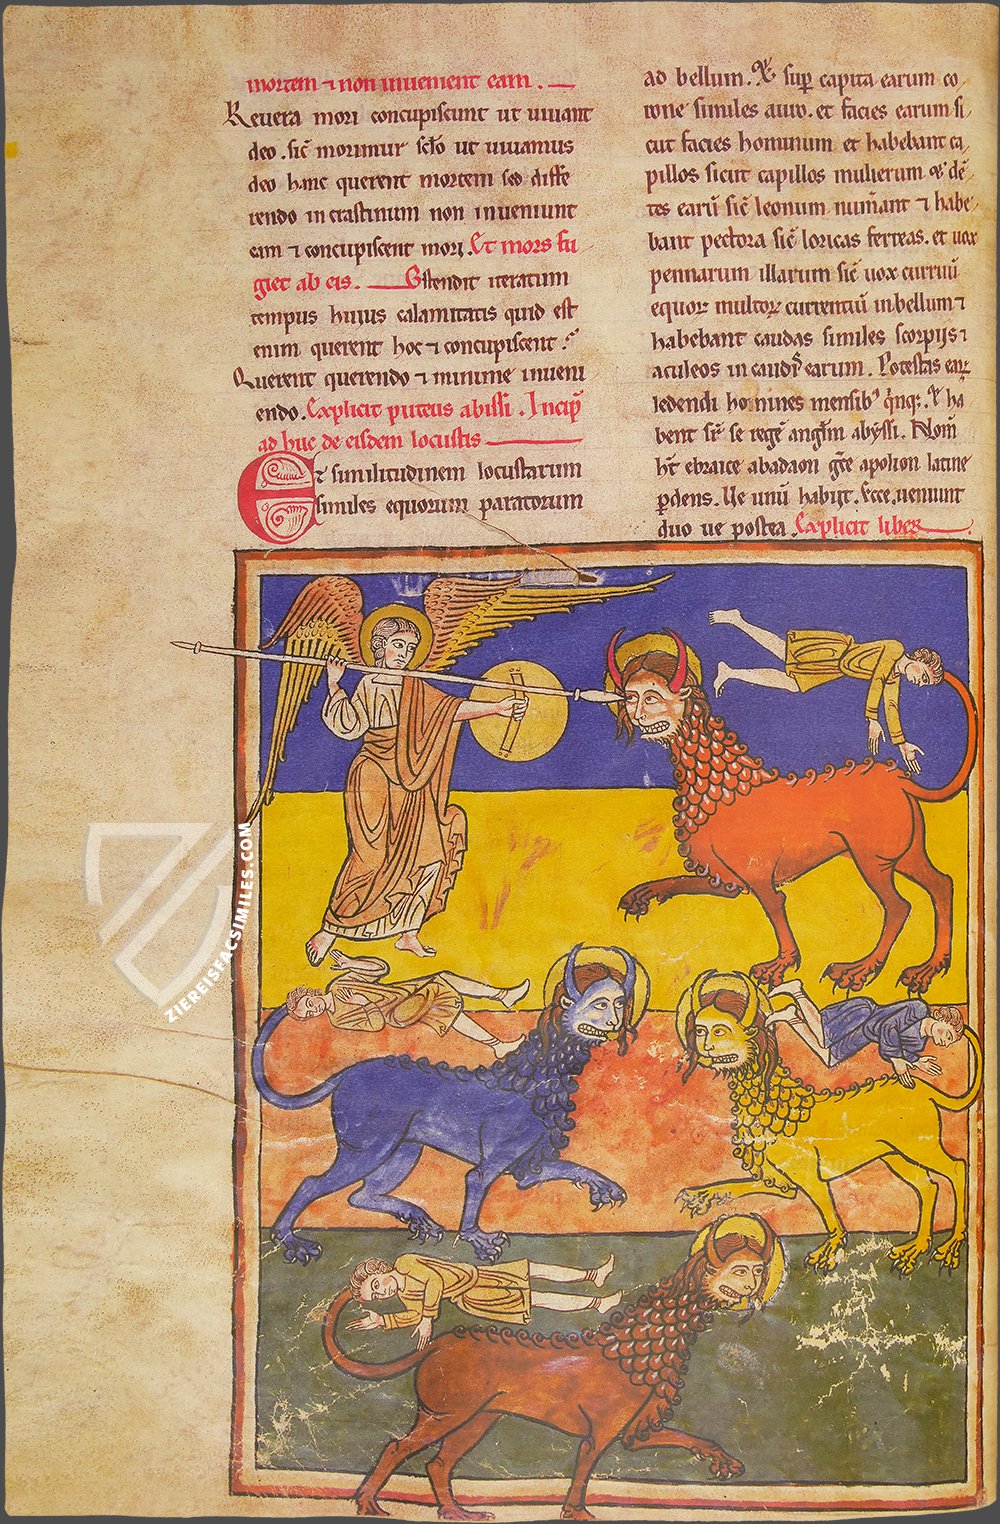 mortem ⁊ non invenient eam.
Revera mori concupiscunt ut vivant
deo. sic̄ morimur sclo ut vivamus
deo hanc querent mortem sed diffe
rendo in crastinum non inveniunt
eam ⁊ concupiscent mori. Et mors fu
giet ab eis. Ostendit iteratum
tempus huius calamitatis quid est
enim querent hoc ⁊ concupiscent.
Querent querendo ⁊ minime inveni
endo. Explicit puteus abissi. Incip̄
ad huc de eisdem locustis
Et similitudinem locustarum
similes equorum paratorum
ad bellum. Et sup̄ capita earum co
rone similes auro. et facies earum si
cut facies hominum et habebant ca
pillos sicut capillos mulierum dē
tes earū sic̄ leonum ⁊ habe
bant pectora sic̄ loricas ferreas. et vox
pennarum illarum sic̄ vox curruū
equoꝝ multoꝝ currentiū in bellum ⁊
habebant caudas similes scorpiis ⁊
aculeos in earum. Potestas eaꝝ
ledendi homines mensibꝰ Et ha
bent se regē abyssi. Nom̄
ht̄ ebraice abadaon apolion latine
ꝑdens. Ve unū habiit. Ecce. veniunt
duo ve postea. Explicit liber
ZIEREISFACSIMILES.COM